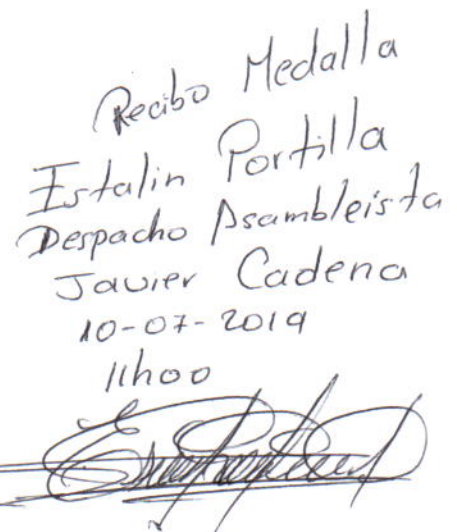 Recibo Medalla
Estalin Portilla
Despacho Asambleista
Javier Cadena
10-07-2019
11h00